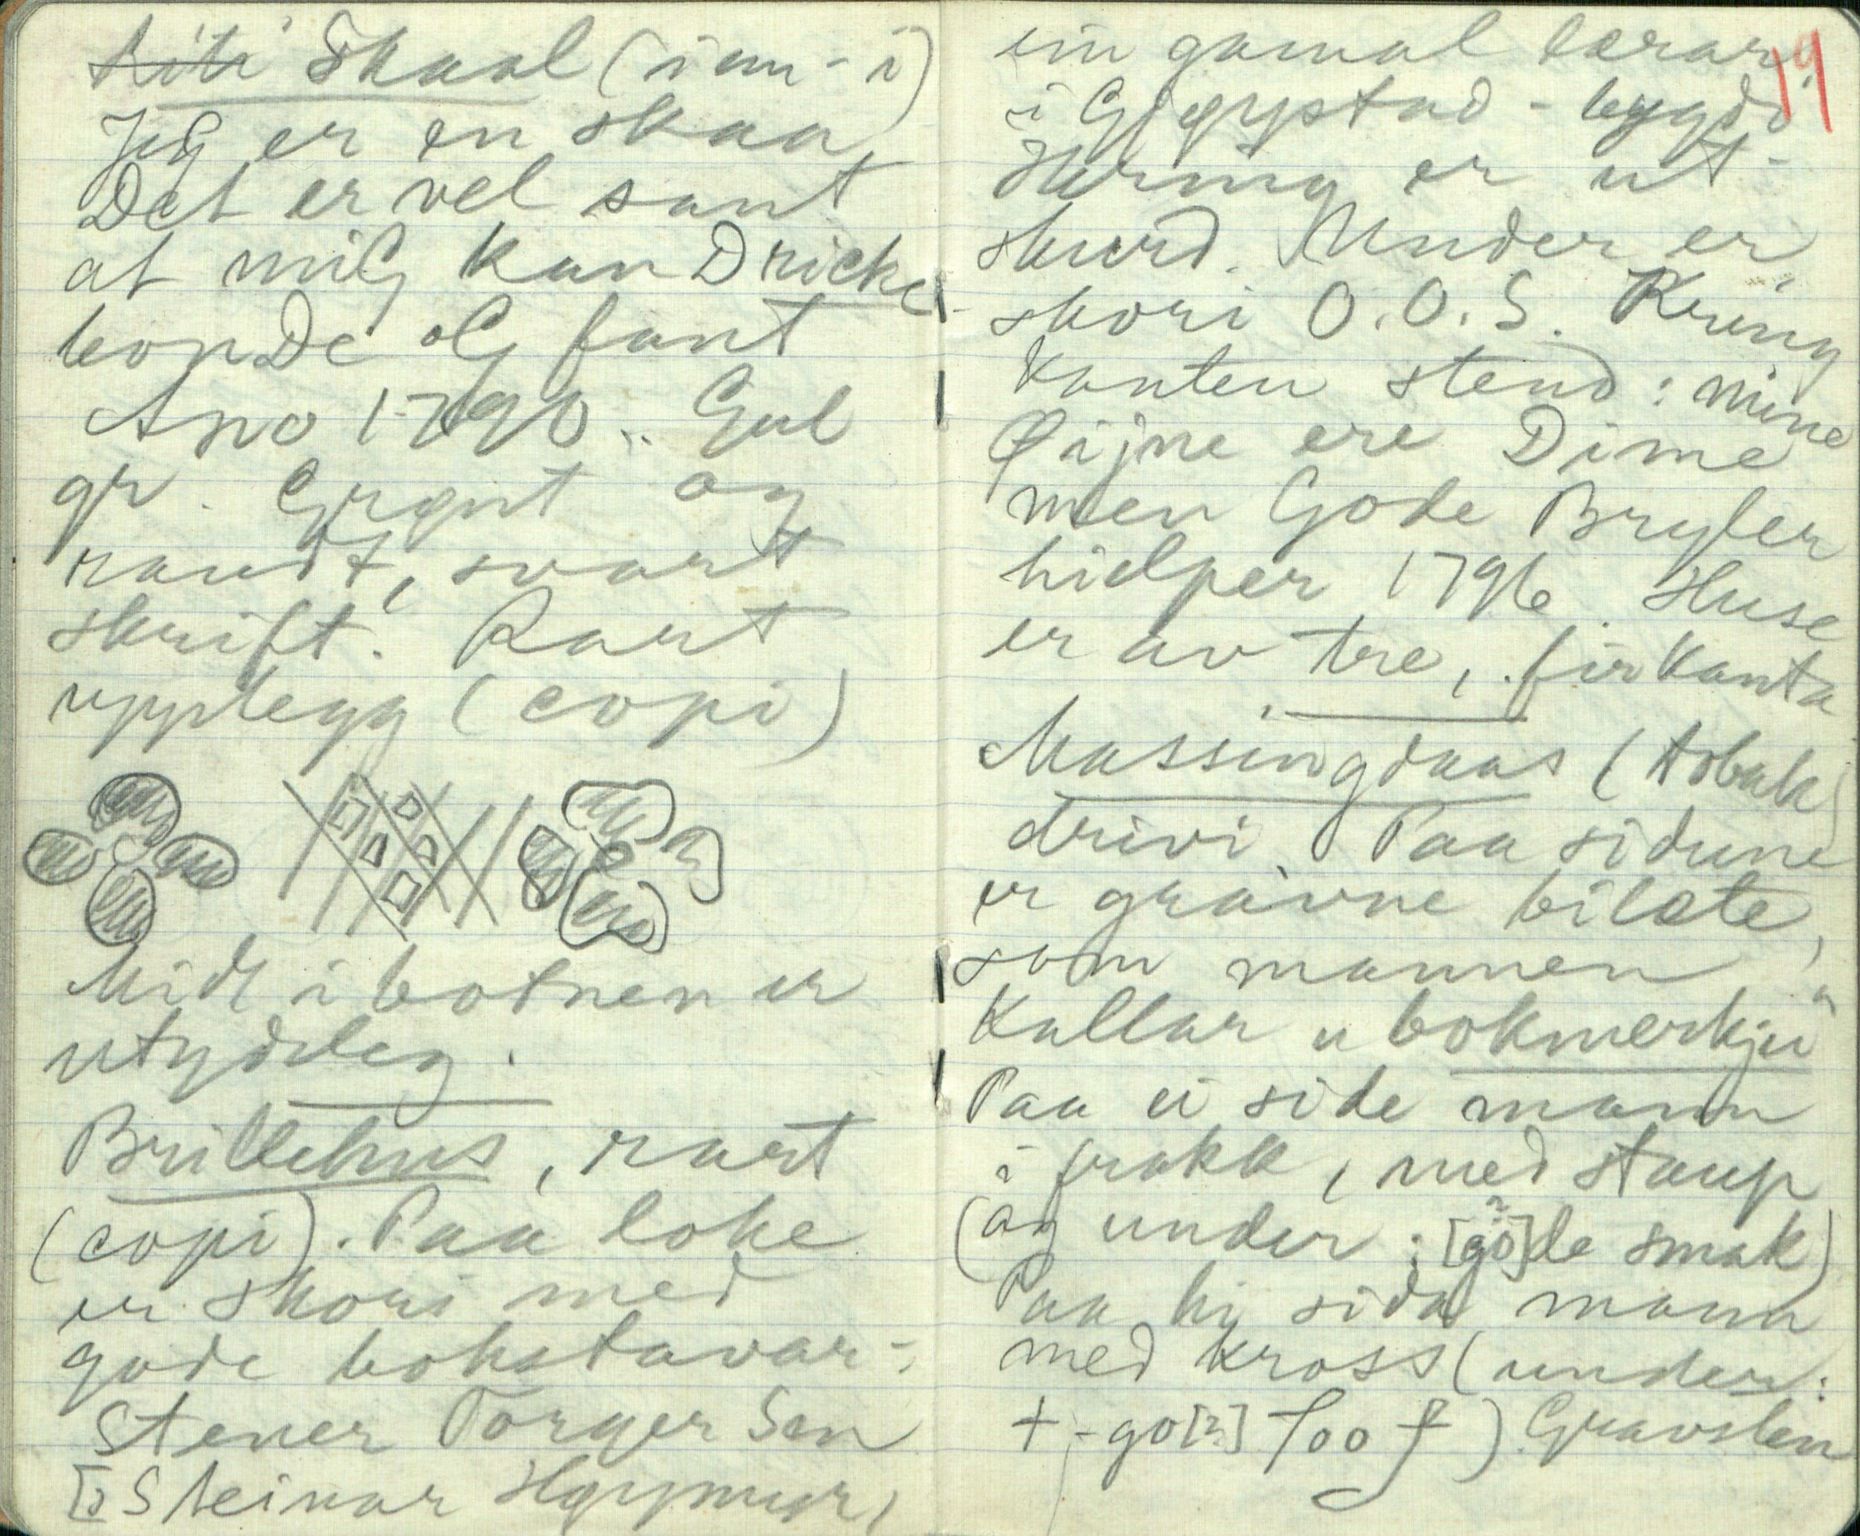 Skaal (i em - i)
Jeg er en skaa
Det er vel sant
at miG kan Dricke
bonDe oG fant
Ano 1790. Gul
gr. Grønt og
raudt, svart
skrift. Rart
upplegg (copi)
Midt i botnen er
utydeleg.
Brillehus, rart
(copi). Paa loke
er skori med
gode bokstavar:
Stener Torger Sen
[: Steinar Høymyr,
ein gamal lærar
19
i Gløgystad - bygdi
Hering er ut-
skurd. Under er
skori O.O.S. Kring
Kanten stend: mine
Øijne ere Dime
men Gode Bryler
hielper 1796. Huse
er av tre, firkanta
Massingdaas (tobak)
drivi. Paa sidune
er gravne bilæte,
som mannen
Kallar "bokmerkji"
Paa ei side mann
i frakk, med staup
(og under: [gó]de smak)
Paa hi sida mann
med kross (under:
+ - go[?] foo f) Gravsten